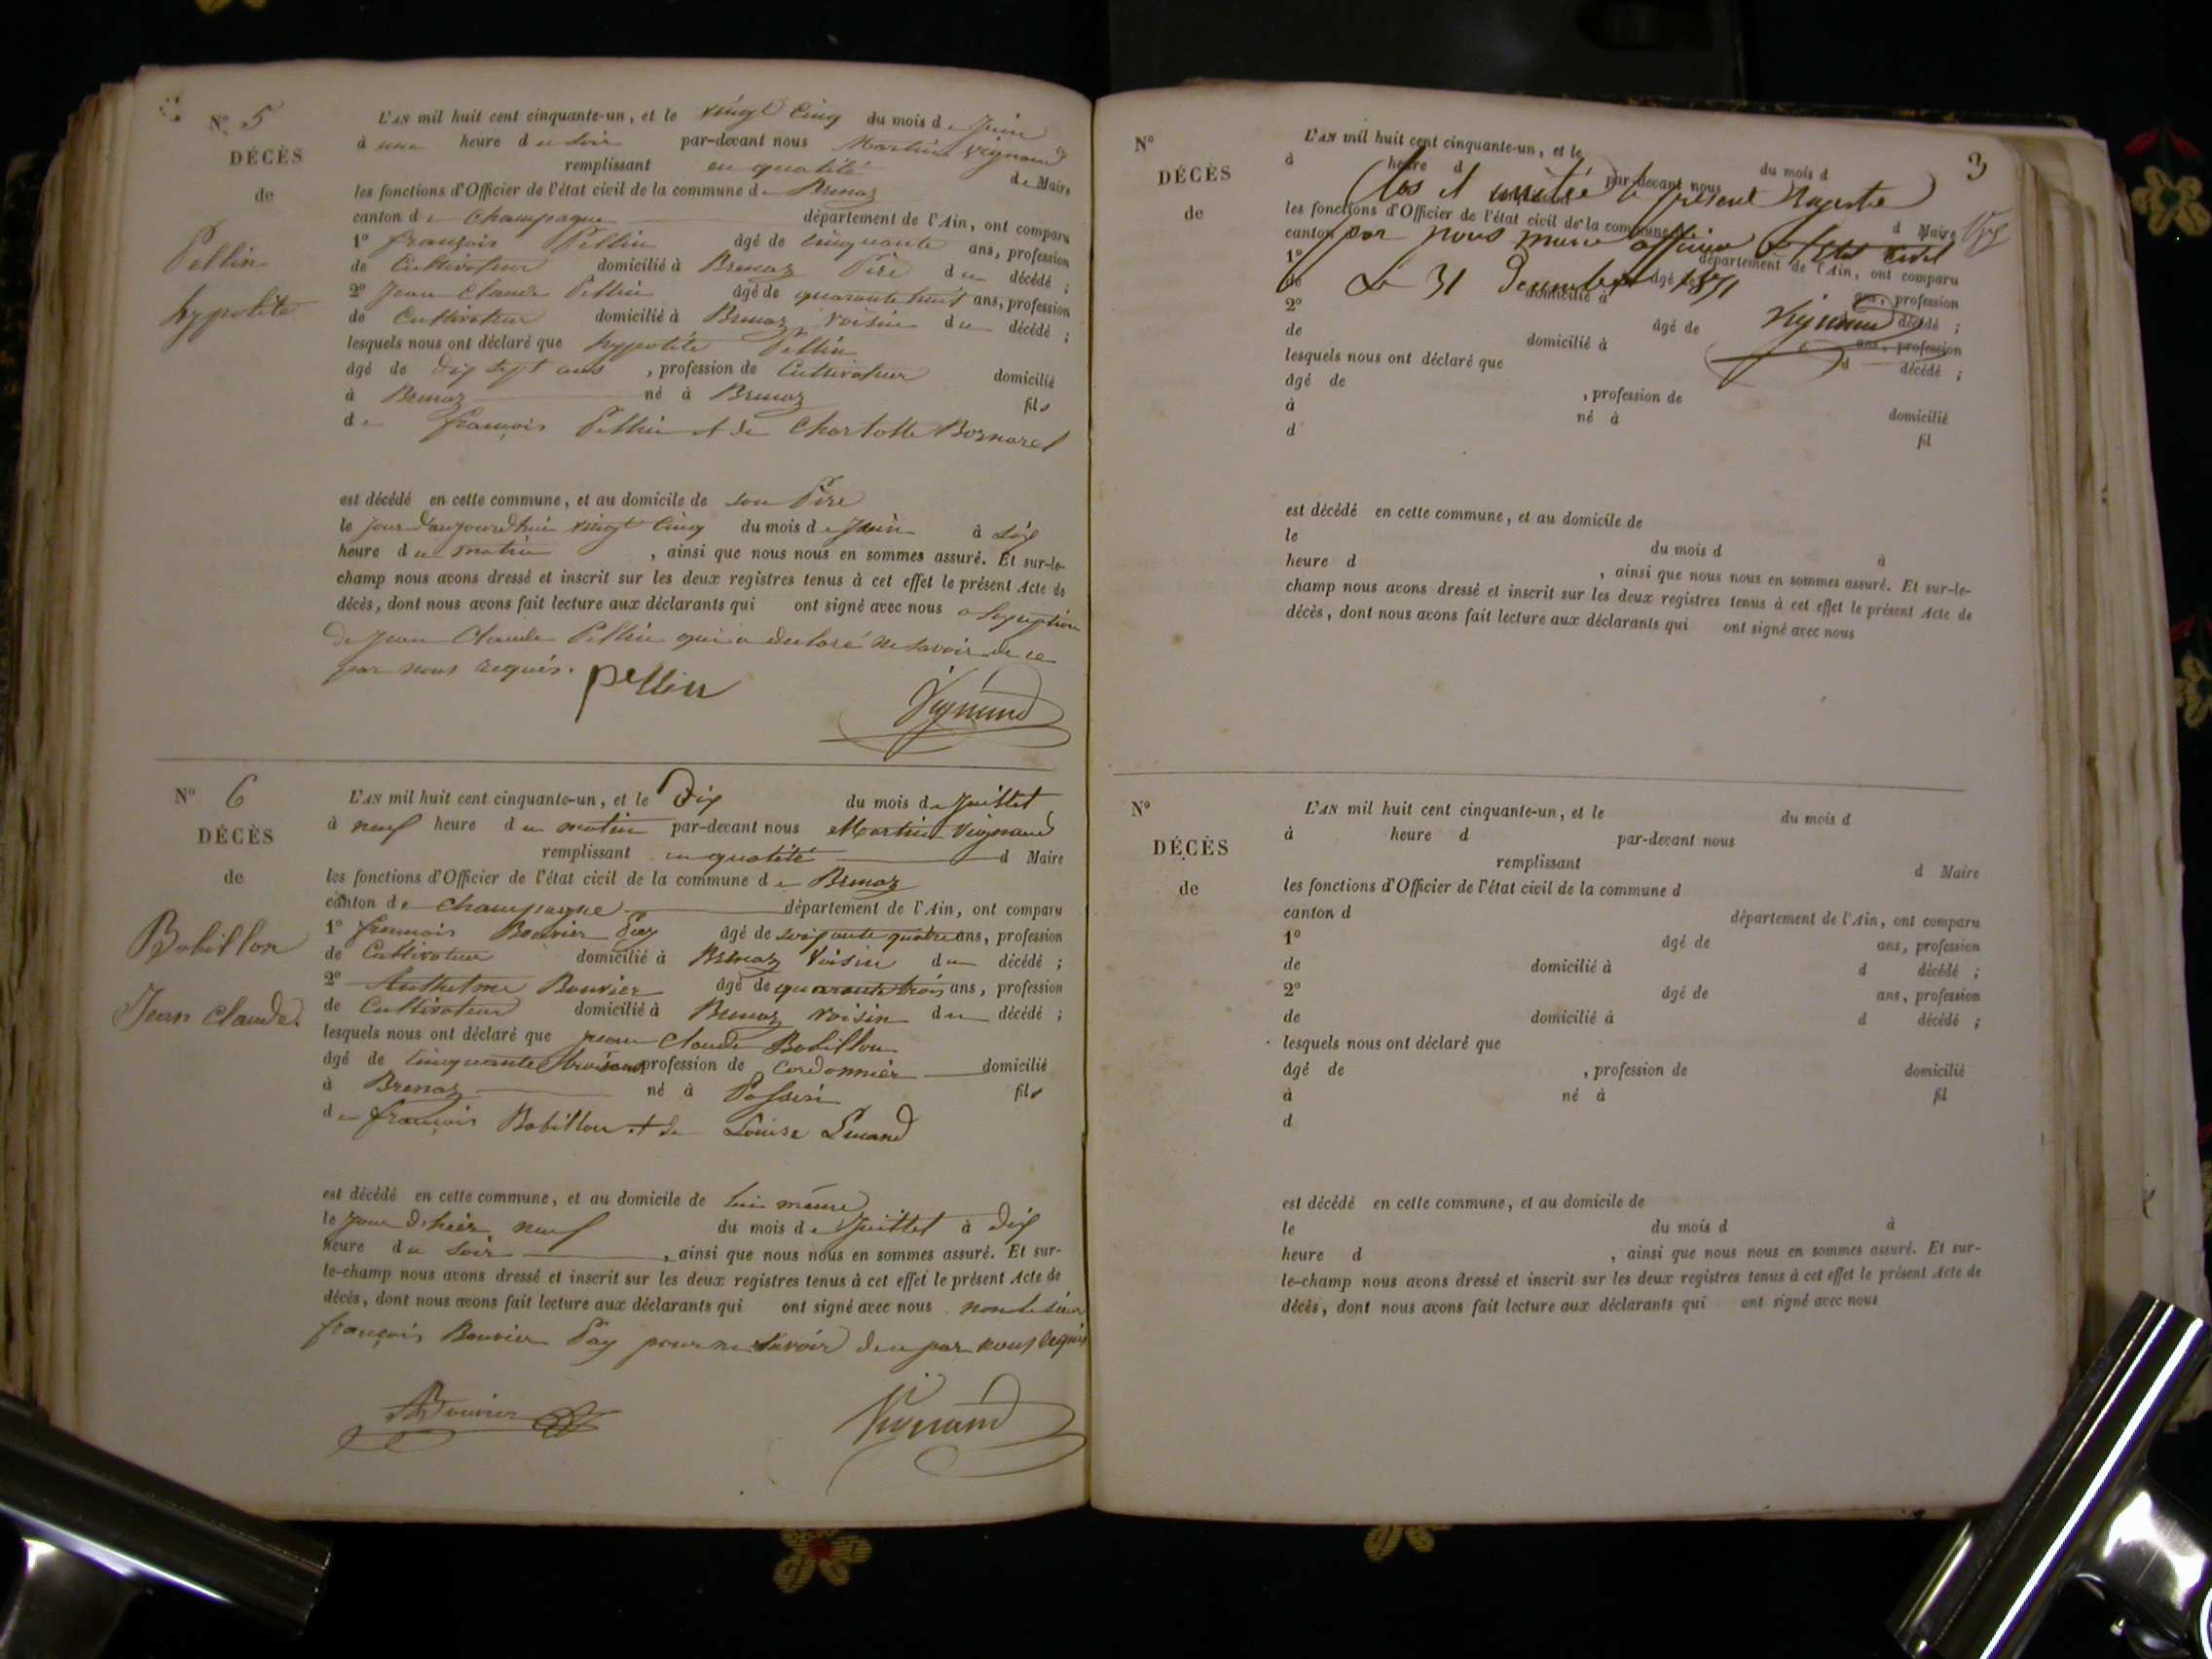 N° 5
DÉCÈS
de
Pellin
hypolite
L'AN mil huit cent cinquante-un, et le vingt cinq du mois de Juin
à une heure du soir par-devant nous Martin Vignand
remplissant en qualité de Maire
les fonctions d'Officier de l'état civil de la commune de Brenaz
canton de Champagne département de l'Ain, ont comparu
1° françois Pellin âgé de cinquante ans, profession
de Cultivateur domicilié à Brenaz Père du décédé ;
2° Jean Claude Pellin âgé de quarante huit ans, profession
de Cultivateur domicilié à Brenaz, voisin du décédé ;
lesquels nous ont déclaré que hypolite Pellin
âgé de dix sept ans , profession de Cultivateur domicilié
à Brenaz né à Brenaz fils
de françois Pellin et de Charlotte Bornarel
est décédé en cette commune, et au domicile de son Père
le Jour d'aujourd'hui vingt cinq du mois de Juin à Six
heure du matin , ainsi que nous nous en sommes assuré. Et sur-le-
champ nous avons dressé et inscrit sur les deux registres tenus à cet effet le présent Acte de
décès, dont nous avons fait lecture aux déclarants qui ont signé avec nous
de Jean Claude Pellin qui a declaré ne savoir de ce
par nous requis. pellin
Vignand
N° 6
DÉCÈS
de
Bobillon
Jean Claude.
L'AN mil huit cent cinquante-un, et le Dix du mois de Juillet
à neuf heure du matin par-devant nous Martin Vignand
remplissant en qualité d Maire
les fonctions d'Officier de l'état civil de la commune de Brenaz
canton de Champagne département de l'Ain, ont comparu
1° françois Bouvier Pay âgé de soixante quatre ans, profession
de Cultivateur domicilié à Brenaz Voisin du décédé ;
2° Anthelme Bouvier âgé de quarante trois ans, profession
de Cultivateur domicilié à Brenaz voisin du décédé ;
lesquels nous ont déclaré que jean Claude Bobillon
âgé de Cinquante trois ans profession de Cordonnier domicilié
à Brenaz né à Passin fils
de françois Bobillon et de Louise
est décédé en cette commune, et au domicile de lui même
le Jour d'hier neuf du mois de Juillet à dix
heure du soir , ainsi que nous nous en sommes assuré. Et sur-
le-champ nous avons dressé et inscrit sur les deux registres tenus à cet effet le présent Acte de
décès, dont nous avons fait lecture aux déclarants qui ont signé avec nous
françois Bouvier Pay pour ne savoir de ce par nous requis
ABouvier
Vignand
3
N°
DÉCÈS
de
L'AN mil huit cent cinquante-un, et le du mois d
à heure d par-devant nous
Clos et arrêté le présent Registre
remplissant d Maire
les fonctions d'Officier de l'état civil de la commune
par nous maire officier de l'état civil
canton département de l'Ain, ont comparu
Le 31 Decembre 1851
1° âgé de ans, profession
de domicilié à décédé ;
Vignand
2° âgé de ans, profession
de domicilié à d décédé ;
lesquels nous ont déclaré que
âgé de , profession de domicilié
à né à fil
d
est décédé en cette commune, et au domicile de
le du mois d à
heure d , ainsi que nous nous en sommes assuré. Et sur-le-
champ nous avons dressé et inscrit sur les deux registres tenus à cet effet le présent Acte de
décès, dont nous avons fait lecture aux déclarants qui ont signé avec nous
N°
DÉCÈS
de
L'AN mil huit cent cinquante-un, et le du mois d
à heure d par-devant nous
remplissant d Maire
les fonctions d'Officier de l'état civil de la commune d
canton d département de l'Ain, ont comparu
1° âgé de ans, profession
de domicilié à d décédé ;
2° âgé de ans, profession
de domicilié à d décédé ;
lesquels nous ont déclaré que
âgé de , profession de domicilié
à né à fil
d
est décédé en cette commune, et au domicile de
le du mois d à
heure d , ainsi que nous nous en sommes assuré. Et sur-
le-champ nous avons dressé et inscrit sur les deux registres tenus à cet effet le présent Acte de
décès, dont nous avons fait lecture aux déclarants qui ont signé avec nous